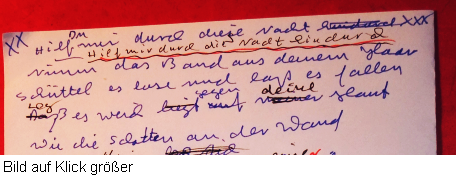 XX Hilf Du mir durch diese Nacht XXX
Hilf mir durch die Nacht hindurch
nimm das Band aus deinem Haar
schüttel es lose und lass es fallen
Leg es weich gegen deine Haut
wie die Schatten an der Wand
Bild auf Klick größer